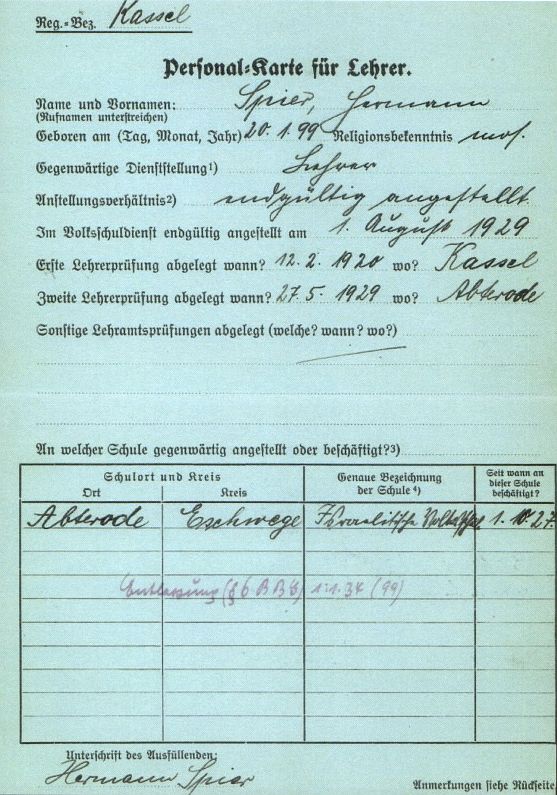 Reg.=Bez. Kassel
Personal=Karte für Lehrer.
Name und Vornamen: Spier, Hermann
(Rufnamen unterstreichen)
Geboren am (Tag, Monat, Jahr) 20. 1. 99 Religionsbekenntnis mos.
Gegenwärtige Dienststellung¹) Lehrer
Anstellungsverhältnis²) endgültig angestellt
Im Volksschuldienst endgültig angestellt am 1. August 1929
Erste Lehrerprüfung abgelegt wann? 12. 2. 1920 wo? Kassel
Zweite Lehrerprüfung abgelegt wann? 27. 5. 1929 wo? Abterode
Sonstige Lehramtsprüfungen abgelegt (welche? wann? wo?)
An welcher Schule gegenwärtig angestellt oder beschäftigt?³)
Schulort und Kreis Genaue Bezeichnung der Schule ⁴) Seit wann an dieser Schule beschäftigt?
Ort Kreis
Abterode Eschwege Israelitische Volksschule 1. 10. 27.
Entlassung (§ 6 B B G) 1.1.34 (99)
Unterschrift des Ausfüllenden:
Hermann Spier
Anmerkungen siehe Rückseite